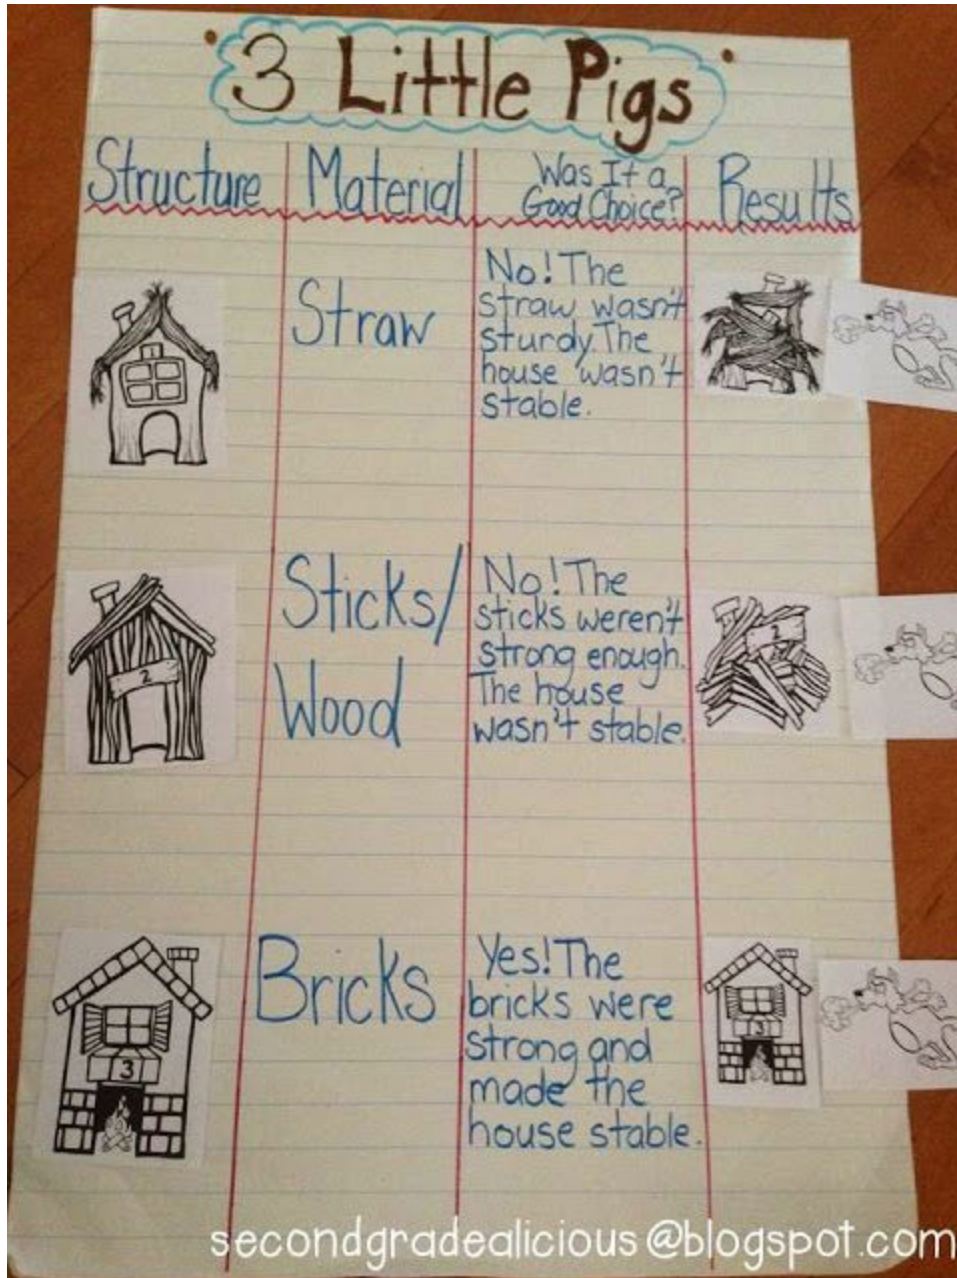 3 Little Pigs
Structure
Material
Was It a
Good Choice?
Results
Straw
No! The
straw wasn't
sturdy. The
house wasn't
stable.
2
Sticks/
Wood
No! The
sticks weren't
strong enough.
The house
wasn't stable.
2
3
Bricks
Yes! The
bricks were
strong and
made the
house stable.
3
secondgradealicious@blogspot.com